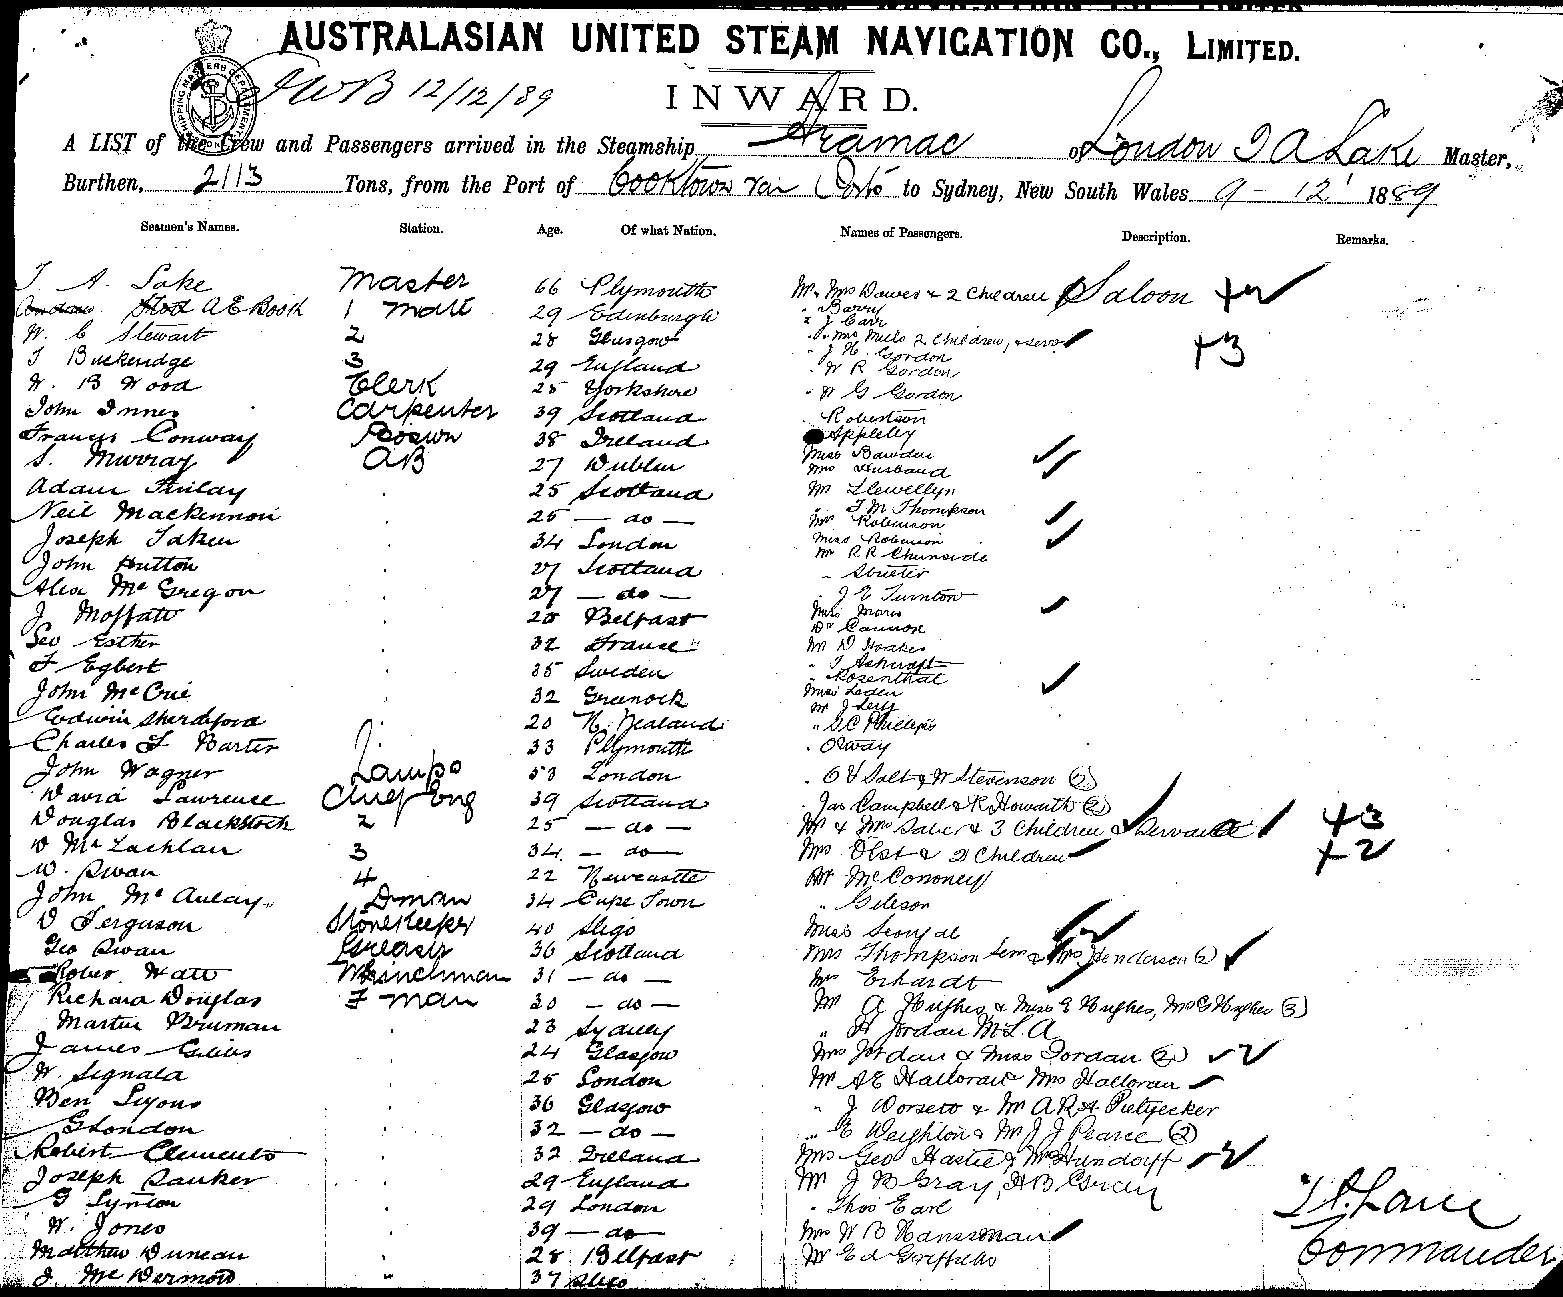 AUSTRALASIAN UNITED STEAM NAVIGATION CO., LIMITED.
12/12/89
INWARD.
A LIST of the Crew and Passengers arrived in the Steamship Aramac of London T A Lake Master,
Burthen, 2113 Tons, from the Port of Cooktown via Ports to Sydney, New South Wales 9 - 12 1889
Seamen's Names. Station. Age. Of what Nation. Names of Passengers. Description. Remarks.
T. A. Lake Master 66 Plymouth Mr & Mrs Dawes & 2 Children Saloon
A E Book 1 Mate 29 Edinburgh " Barry
" J Carr
W. C Stewart 2 28 Glasgow " & Mrs Mills 2 Children, & serv +3
T Buckeridge 3 29 England " J H. Gordon
" W R Gordon
W. B Wood Clerk 25 Yorkshire " W G Gordon
John Innes Carpenter 39 Scotland Robertson
Francis Conway Bosun 38 Ireland Appleby
S. Murray AB 27 Dublin Miss Bawden
Mrs Husband
Adam Finlay 25 Scotland Mr Llewellyn
Neil Mackinnon 25 — do — " T M Thompson
Mr Robinson
Joseph Taken 34 London Miss Robinson
Mr R R Chirnside
John Hutton 27 Scotland
Alex McGregor 27 — do — " J E Turnton
J Moffatt 28 Belfast Miss
Dr Cannon
Geo Esther 32 France Mr D Hoares
F Egbert 35 Sweden " T Ashcroft
" Rosenthal
John McCrie 32 Greenock Miss
Mr J Levy
Edwin 20 N. Zealand " G C Phillips
Charles F Barter 33 Plymouth " Oway
John Wagner Lamps 53 London " Salt & W Stevenson (2)
David Lawrence Chief Eng 39 Scotland " Jas Campbell & R Howarth (2)
Douglas Blackstock 2 25 — do — Mr & Mrs & 3 Children & Servant +3
D McLachlan 3 34 — do — Mrs & 2 Children +2
W. Swan 4 22 Newcastle Mr McCononey
John McAulay Dman 34 Cape Town " Gibson
D Ferguson Storekeeper 40 Sligo Miss
Geo Swan Greaser 36 Scotland Mrs Thompson Senr & Mrs Henderson (2)
Watt Winchman 31 — do — Mr Erhardt
Richard Douglas F man 30 — do — Mr A Hughes & Miss E Hughes, Mr G Hughes (3)
Martin Bruman 23 Sydney " H Jordan M.L.A.
James Gibbs 24 Glasgow Mrs Jordan & Miss Jordan (2)
W. Signala 25 London Mr A E Halloran Mrs Halloran
Ben Lyons 36 Glasgow " J Worsett & Mr A R A
G London 32 — do — " E Weighton & Mr J J Pearce (2)
Robert Clements 32 Ireland Mrs Geo Hastie & Mrs Hundorff
Joseph Banker 29 England Mr J B Gray, H B
G Lynton 29 London " Thos Earl
W. Jones 39 — do — Mrs W B
Matthew Duncan 28 Belfast Mr Ed Griffiths
J. McDermott " 37 Sligo
Commander